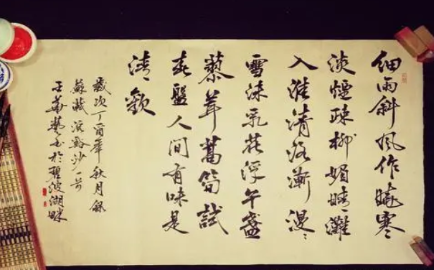 细雨斜风作晓寒
淡烟疏柳媚晴滩
入淮清洛渐漫漫
雪沫乳花浮午盏
蓼茸蒿笋试
春盘人间有味是
清欢
岁次丁酉年秋月录
苏轼浣溪沙一首